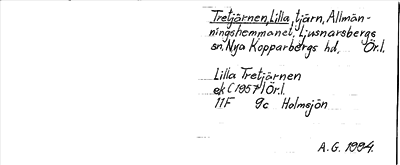 Tretjärnen, Lilla, tjärn, Allmän-
ningshemmanet. Ljusnarsbergs
sn. Nya Kopparbergs hd, Ör.l.
Lilla Tretjärnen
ek (1957) Ör.l.
11F 9c Holmsjön
A.G. 1994.